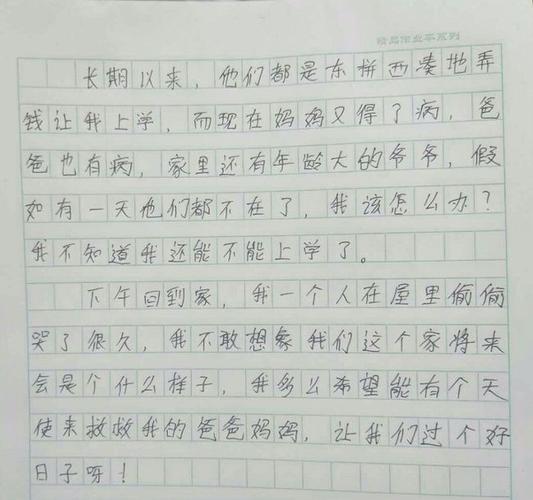 精品作业本系列
长期以来，他们都是东拼西凑地弄
钱让我上学，而现在妈妈又得了病，爸
爸也有病，家里还有年龄大的爷爷，假
如有一天他们都不在了，我该怎么办？
我不知道我还能不能上学了。
下午回到家，我一个人在屋里偷偷
哭了很久，我不敢想象我们这个家将来
会是个什么样子，我多么希望能有个天
使来救救我的爸爸妈妈，让我们过个好
日子呀！